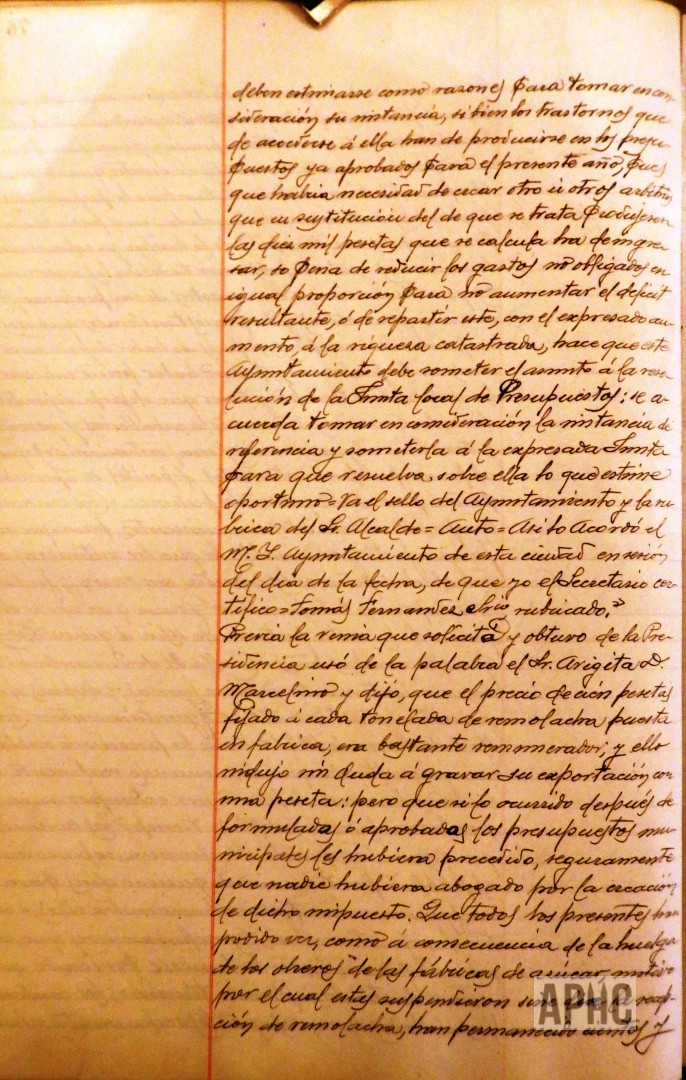 deben estimarse como razones para tomar en con-
sideración su instancia, si bien los trastornos que
de accederse á ella han de producirse en los presu-
puestos ya aprobados para el presente año, pues
que habia necesidad de crear otro ú otros arbitrios
que en sustitución del de que se trata produjesen
las diez mil pesetas que se calcula ha de ingre-
sar, so pena de reducir los gastos no obligados en
igual proporción para no aumentar el deficit
resultante, ó de repartir este, con el expresado au-
mento, á la riqueza catastrada, hace que este
Ayuntamiento debe someter el asunto á la reso-
lución de la Junta local de Presupuestos: se a-
cuerda tomar en consideración la instancia de
referencia y someterla á la expresada Junta
para que resuelva sobre ella lo que estime
oportuno = Va el sello del Ayuntamiento y la rú-
brica del Sr. Alcalde = Auto = Asi lo Acordó el
M. I. Ayuntamiento de esta ciudad en sesión
del dia de la fecha, de que yo el Secretario cer-
tifico = Tomás Fernandez Srio rubricado."
Previa la venia que solicitá y obtuvo de la Pre-
sidencia usó de la palabra el Sr. Arigita D.
Marcelino y dijó, que el precio de cien pesetas
fijado á cada tonelada de remolacha puesta
en fabrica, era bastante remunerador, y ello
indujo sin duda á gravar su exportación con
una peseta: pero que si lo ocurrido después de
formulados ó aprobados los presupuestos mu-
nicipales les hubiera precedido, seguramente
que nadie hubiera abogado por la creación
de dicho impuesto. Que todos los presentes han
podido ver, como á consecuencia de la huelga
de los obreros de las fábricas de azúcar, motivo
por el cual estas suspendieron la recep-
ción de remolacha, han permanecido y
APHC